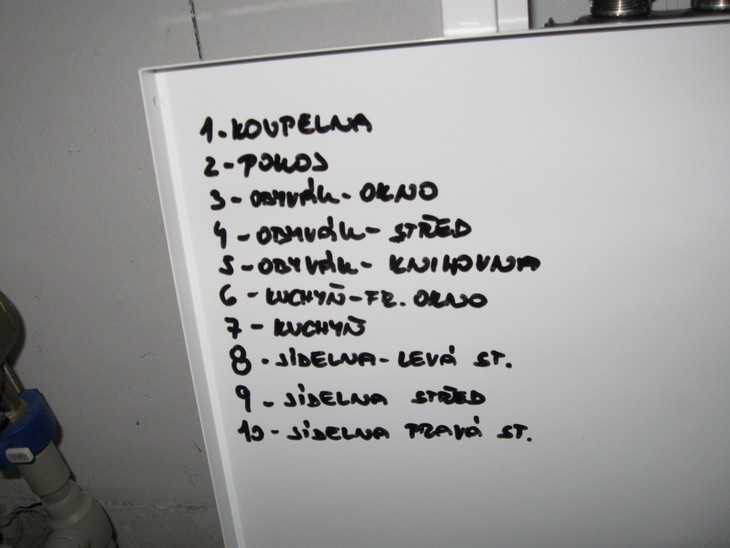 1-KOUPELNA
2-POKOJ
3-OBYVÁK-OKNO
4-OBYVÁK-STŘED
5-OBYVÁK-KNIHOVNA
6-KUCHYŇ-FR. OKNO
7-KUCHYŇ
8-JÍDELNA-LEVÁ ST.
9-JÍDELNA STŘED
10-JÍDELNA PRAVÁ ST.